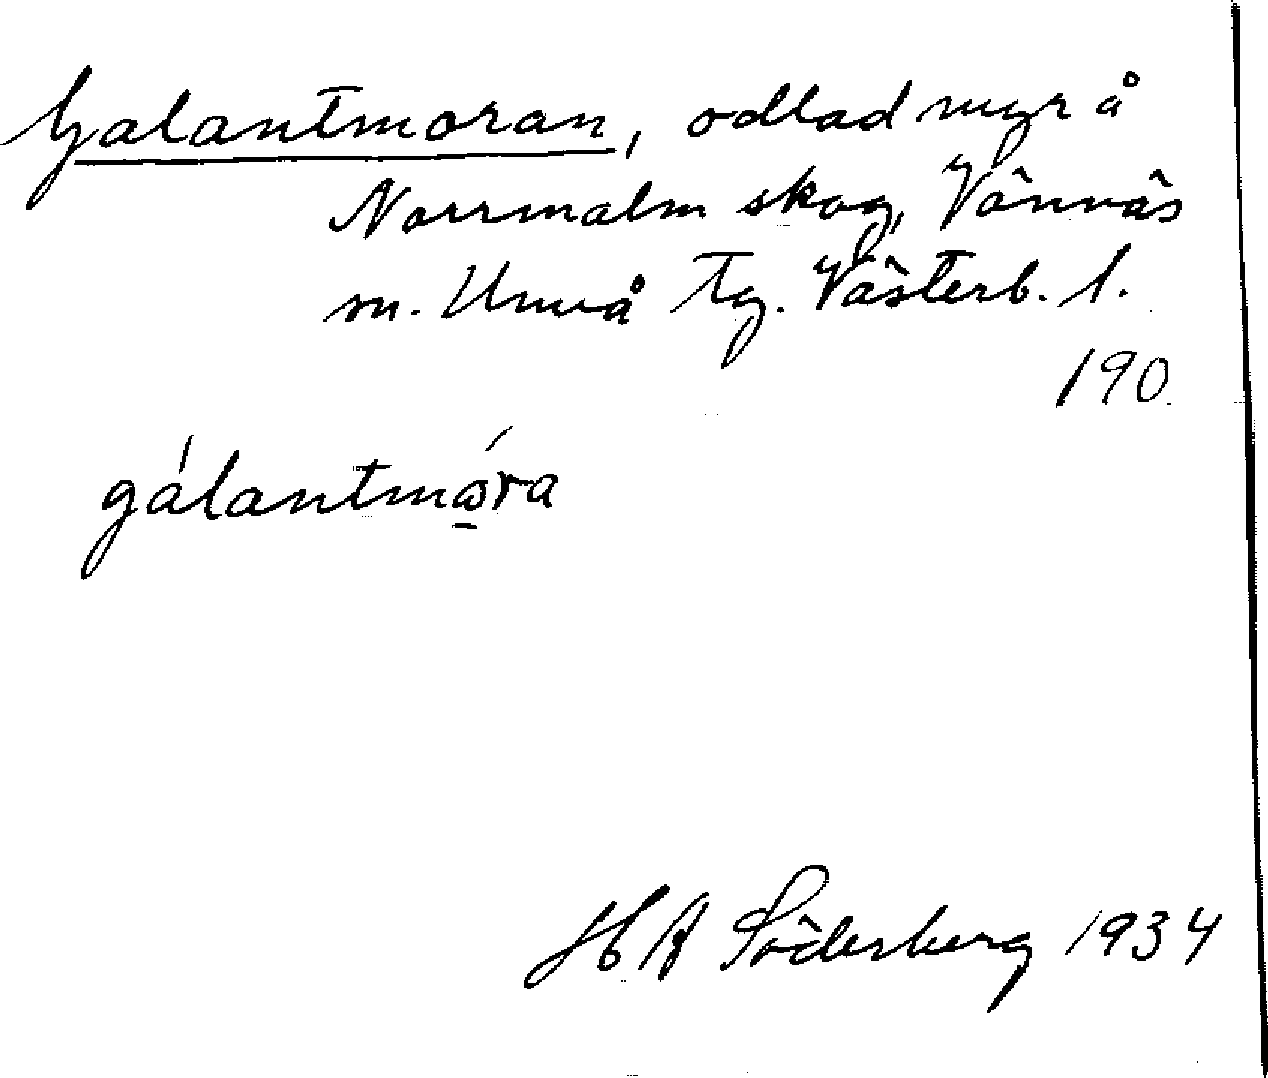 Galantmoran, odlad myr å
Norrmalm skog, Vännäs
sn. Umeå Tg. Västerb. l.
190
gálantmǫ́ra
H A Söderberg 1934